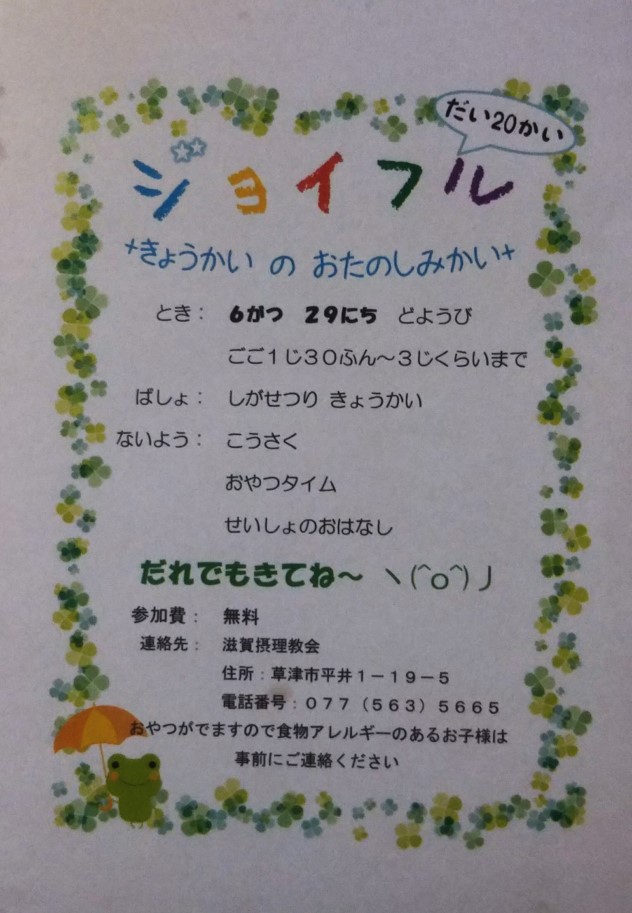 だい20かい
ジョイフル
+きょうかい の おたのしみかい+
とき： 6がつ 29にち どようび
ごご1じ30ふん～3じくらいまで
ばしょ： しがせつり きょうかい
ないよう： こうさく
おやつタイム
せいしょのおはなし
だれでもきてね～ ヽ(^o^)丿
参加費： 無料
連絡先： 滋賀摂理教会
住所：草津市平井1－19－5
電話番号：077（563）5665
おやつがでますので食物アレルギーのあるお子様は
事前にご連絡ください